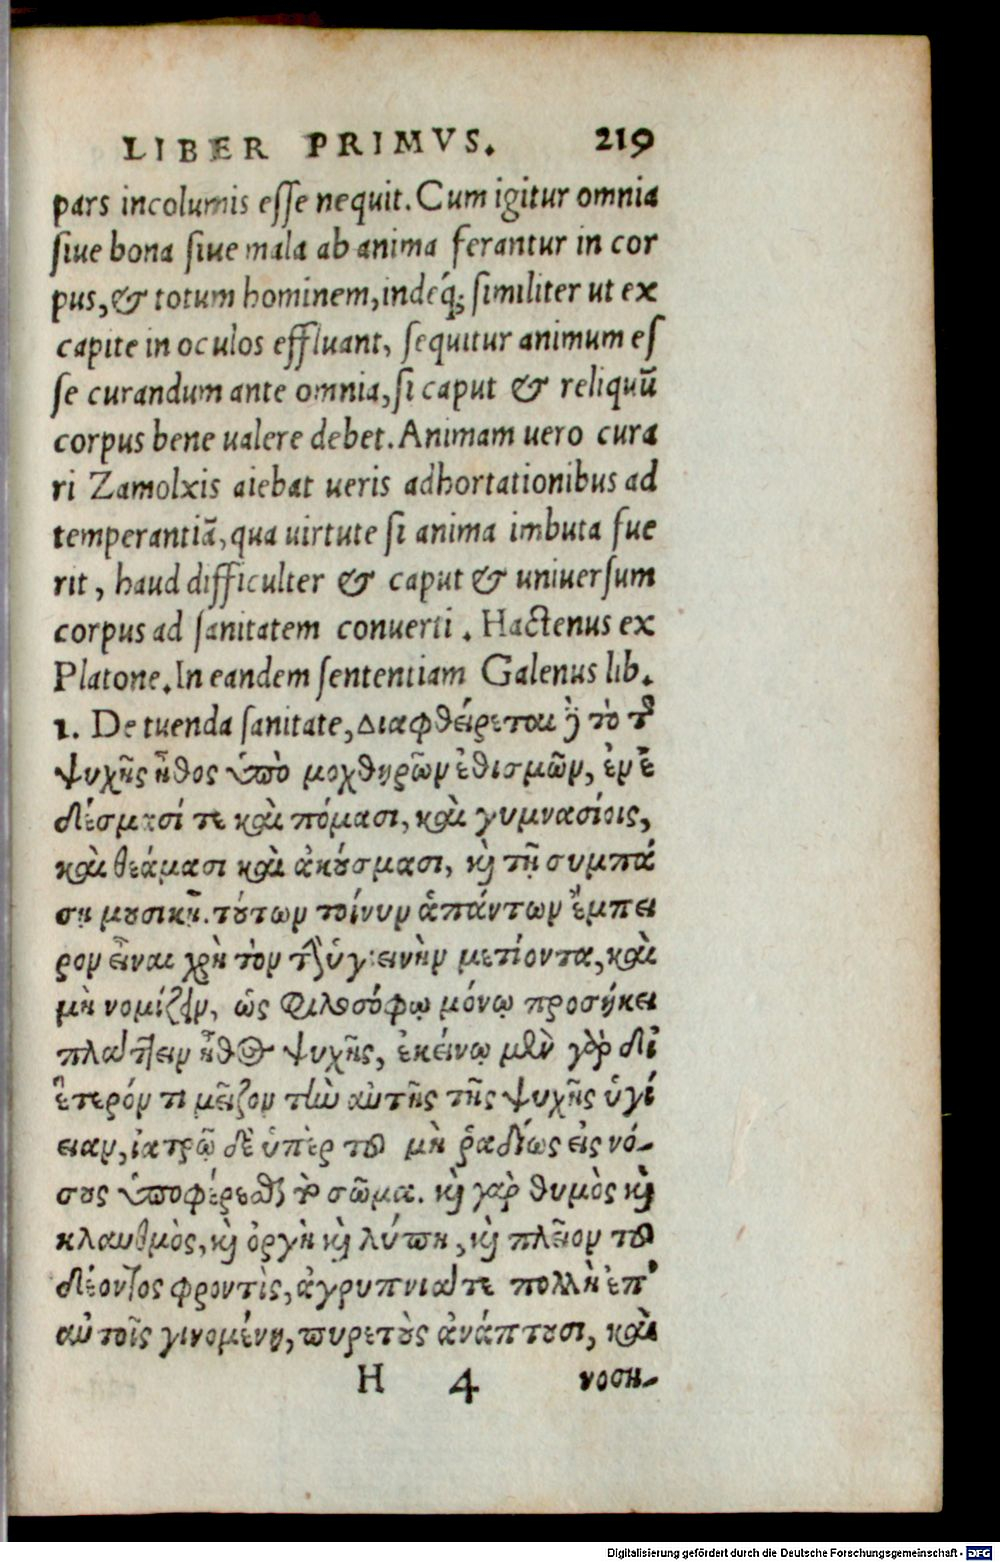 LIBER PRIMVS. 219
pars incolumis esse nequit. Cum igitur omnia
siue bona siue mala ab anima ferantur in cor
pus, & totum hominem, indeq́; similiter ut ex
capite in oculos effluant, sequitur animum es
se curandum ante omnia, si caput & reliquũ
corpus bene ualere debet. Animam uero cura
ri Zamolxis aiebat ueris adhortationibus ad
temperantiã, qua uirtute si anima imbuta fue
rit, haud difficulter & caput & uniuersum
corpus ad sanitatem conuerti. Hactenus ex
Platone. In eandem sententiam Galenus lib.
1. De tuenda sanitate, Διαφθείρεται ἢ τὸ τ͂
ψυχῆς ἦθος ὑπὸ μοχθηρῶν ἐθισμῶν, ἐν ἐ
δέσμασί τε καὶ πόμασι, καὶ γυμνασίοις,
καὶ θεάμασι καὶ ἀκούσμασι, καὶ τῇ συμπά
σῃ μουσικῇ. τούτων τοίνυν ἁπάντων ἔμπει
ρον εἶναι χρὴ τὸν τὴν ὑγιεινὴν μετίοντα, καὶ
μὴ νομίζειν, ὡς φιλοσόφῳ μόνῳ προσήκει
πλάττειν ἦθος ψυχῆς, ἐκείνῳ μὲν γὰρ δἰ
ἕτερόν τι μεῖζον τὴν αὐτῆς τῆς ψυχῆς ὑγί
ειαν, ἰατρῷ δὲ ὑπὲρ τοῦ μὴ ῥαδίως εἰς νό-
σους ὑποφέρεσθαι τὸ σῶμα. καὶ γὰρ θυμὸς καὶ
κλαυθμὸς, καὶ ὀργὴ καὶ λύπη, καὶ πλεῖον τοῦ
δέοντος φροντὶς, ἀγρυπνία τε πολλὴ ἐπ’
αὐτοῖς γινομένη, πυρετοὺς ἀνάπτουσι, καὶ
H 4 νοση-
Digitalisierung gefördert durch die Deutsche Forschungsgemeinschaft - DFG